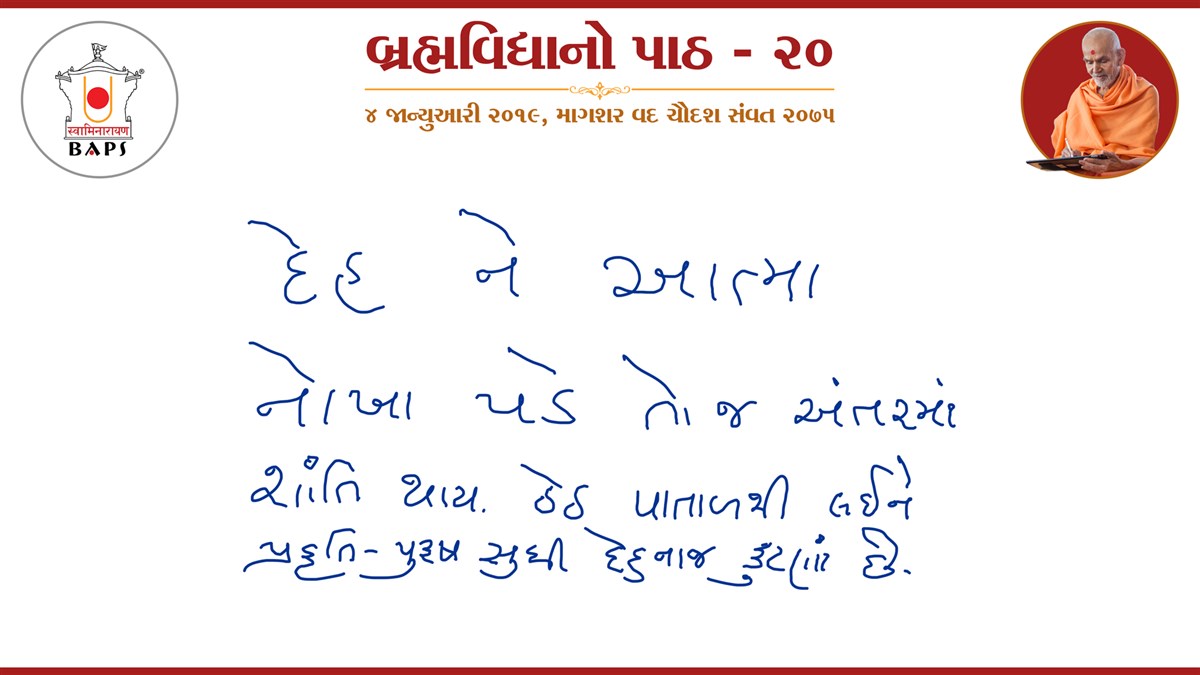 બ્રહ્મવિદ્યાનો પાઠ - ૨૦
૪ જાન્યુઆરી ૨૦૧૯, માગશર વદ ચૌદશ સંવત ૨૦૭૫
स्वामिनारायण
BAPS
દેહ ને આત્મા
નોખા પડે તો જ અંતરમાં
શાંતિ થાય. ઠેઠ પાતાળથી લઈને
પ્રકૃતિ-પુરુષ સુધી દેહનાજ કુટાણાં છે.